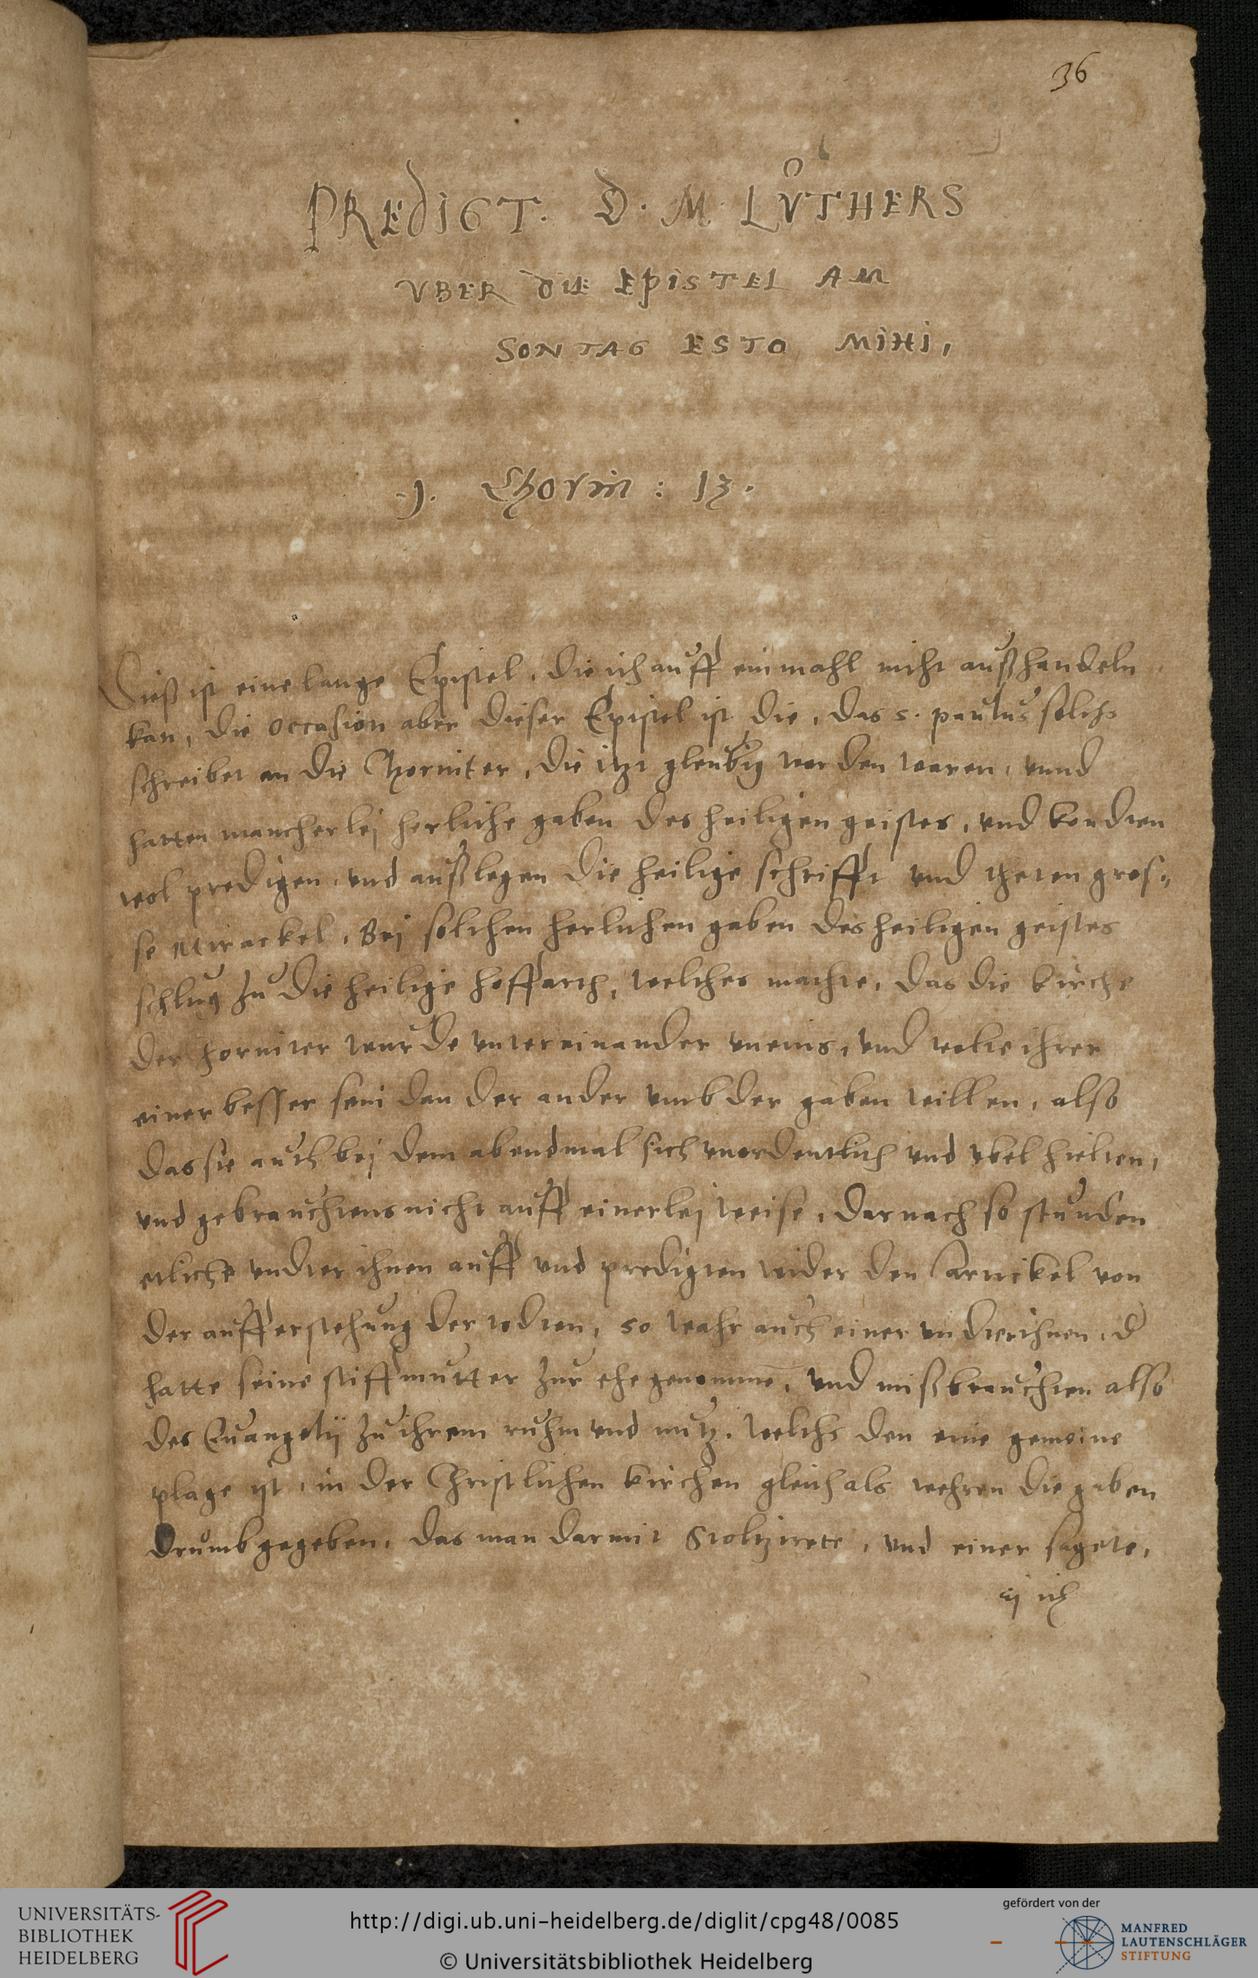 36
PREDIGT. D. M. LůTHERS
VBER DIE EPISTEL AM
SONTAG ESTO MIHI,
.1. Chorin : 13.
Dieß ist eine lange Epistel, die ich auff ein mahl nicht außhandeln
kan, die occasion aber dieser Epistel ist die, das s. paulus solchs
schreibet an die Chorniter, die itzt gleubig worden waren, vnnd
hatten mancherlej herliche gaben des heiligen geistes, vnd kondten
wol predigen, vnd außlegen die heilige schrifft vnd theten gros-
se Mirackel, Bej solchen herlichen gaben des heiligen geistes
schlug zu die heilige hoffarth, welches machte, das die kirche
der Chorniter wurde vntereinander vneins, vnd wolte ihrer
einer besser sein dan der ander vmb der gaben willen, also
das sie auch bej dem abendmal sich vnordentlich vnd vbel hielten,
vnd gebrauchtens nicht auff einerlej weise, Darnach so stunden
etliche vndter ihnen auff vnd predigten wider den Articckel von
der aufferstehung der todten, so wahr auch einer vndter ihnen, d
hatte seine stiffmutter zur ehe genomme, vnd mißbrauchten also
des Euangelij zu ihrem ruhm vnd nutz. Welchs den eine gemeine
plage ist, in der Christlichen kirchen gleich als wehren die gaben
drumb gegeben, das man darmit Stoltzirete, vnd einer sagete,
ej ich
UNIVERSITÄTS-
BIBLIOTHEK
HEIDELBERG
http://digi.ub.uni-heidelberg.de/diglit/cpg48/0085
© Universitätsbibliothek Heidelberg
gefördert von der
MANFRED
LAUTENSCHLÄGER
STIFTUNG